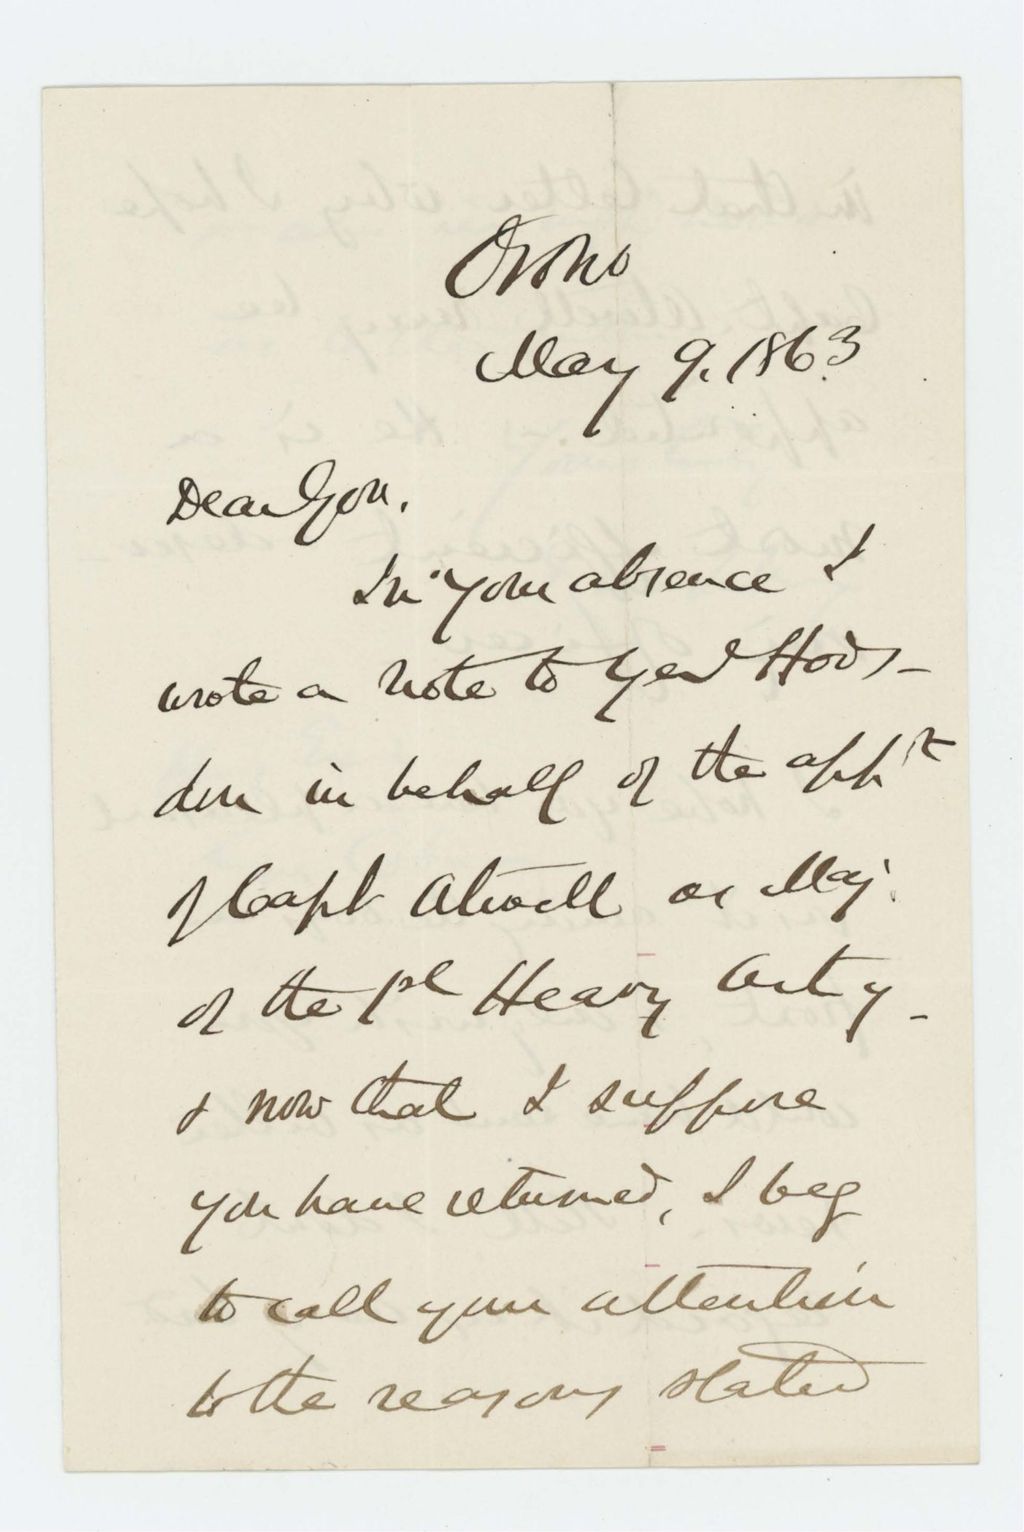 Orono
May 9. 1863
Dear Gov.
In your absence I
wrote a note to Genl Hods-
don in behalf of the appt
of Capt Atwell as Maj.
of the 1st Heavy Arty -
& now that I suppose
you have returned, I beg
to call your attention
to the reasons stated